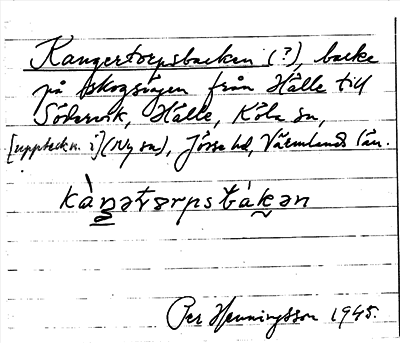 Kangertorpsbacken (?), backe
på skogsvägen från Hålle till
Södervik, Hålle, Köla sn,
[uppteckn. i] (Ny sn), Jösse hd, Värmlands län.
kàŋətɔrpsbákən
Per Henningsson 1945.